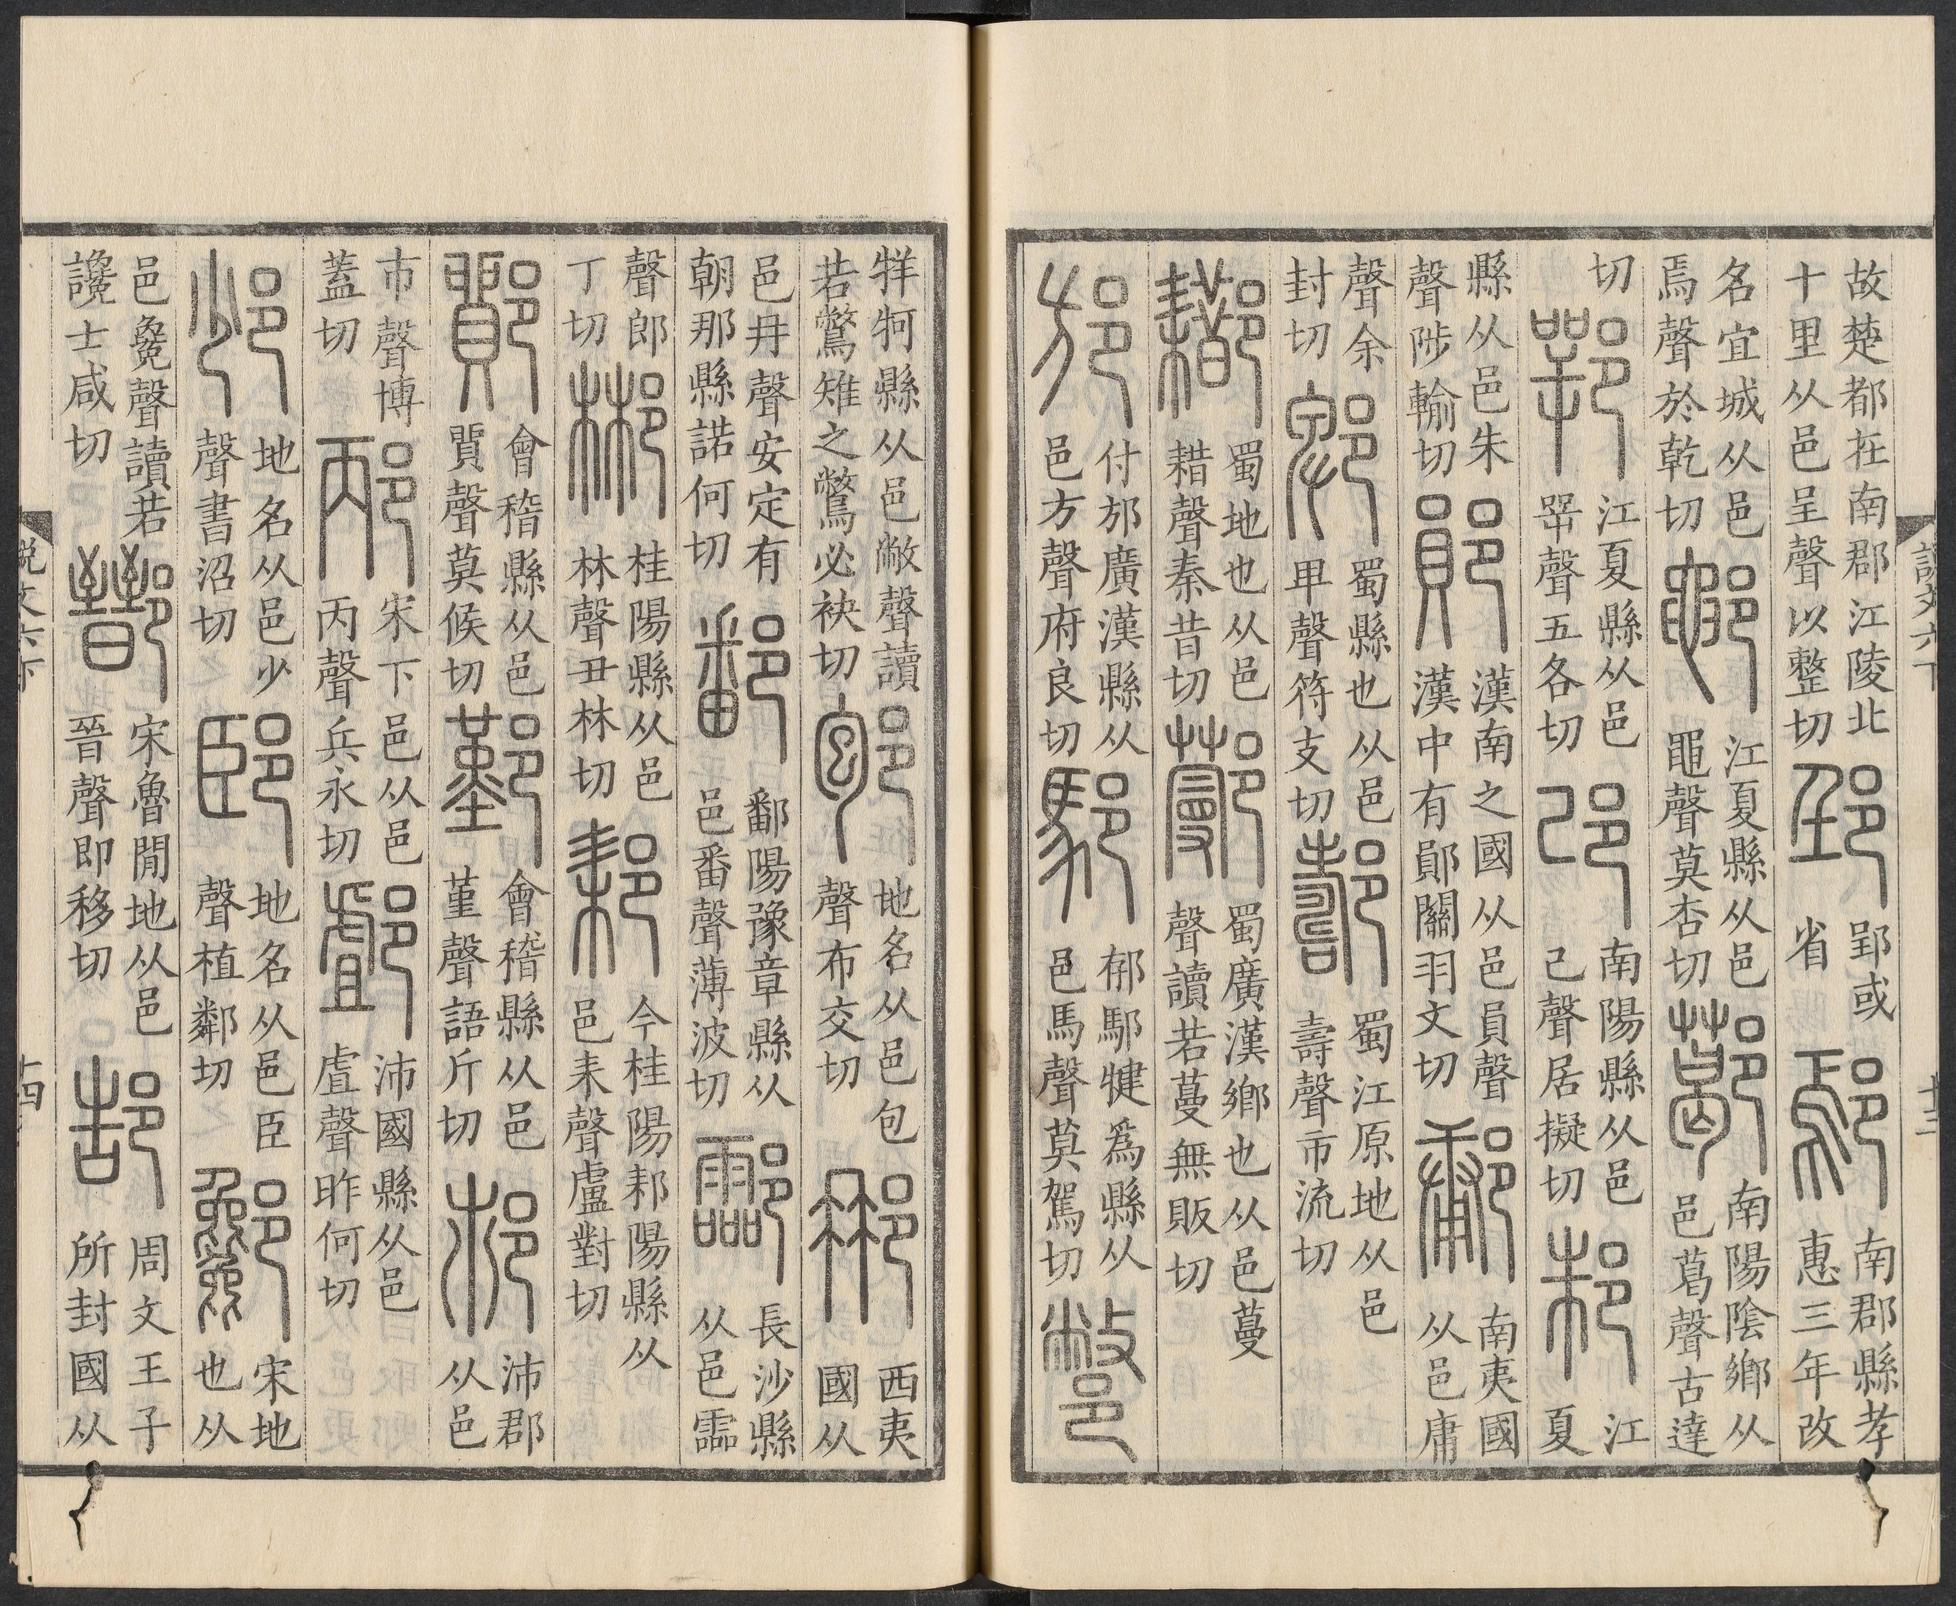 說文六下
十三
故楚都在南郡江陵北十里从邑呈聲以整切 郢或省 鄢 南郡縣孝惠三年改
名宜城从邑焉聲於乾切 鄳 江夏縣从邑黽聲莫杏切 南陽陰鄉从邑葛聲古達
切 鄂 江夏縣从邑咢聲五各切 邔 南陽縣从邑己聲居擬切 邾 江夏
縣从邑朱聲陟輸切 鄖 漢南之國从邑員聲漢中有鄖關羽文切 鄘 南夷國从邑庸
聲余封切 郫 蜀縣也从邑卑聲符支切 蜀江原地从邑壽聲市流切
䣢 蜀地也从邑耤聲秦昔切 蜀廣漢鄉也从邑蔓聲讀若蔓無販切
邡 付邡廣漢縣从邑方聲府良切 䣕 䣕犍爲縣从邑馬聲莫駕切 鄨
牂牁縣从邑敝聲讀若鷩雉之鷩必袂切 地名从邑包聲布交切 那 西夷國从
邑冄聲安定有朝那縣諾何切 鄱 鄱陽豫章縣从邑番聲薄波切 酃 長沙縣从邑霝
聲郎丁切 郴 桂陽縣从邑林聲丑林切 今桂陽陽縣从邑耒聲盧對切
鄮 會稽縣从邑貿聲莫候切 鄞 會稽縣从邑堇聲語斤切 沛郡从邑
巿聲博蓋切 邴 宋下邑从邑丙聲兵永切 沛國縣从邑虘聲昨何切
地名从邑少聲書沼切 地名从邑臣聲植鄰切 酁 宋地也从
邑毚聲讀若讒士咸切 鄑 宋魯閒地从邑晉聲即移切 郜 周文王子所封國从
說文六下
十四